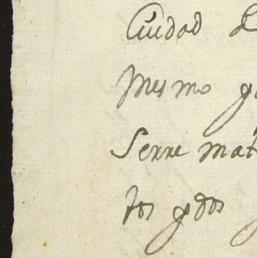 Ciudad
Mesmo
Serre mat
tos gdos